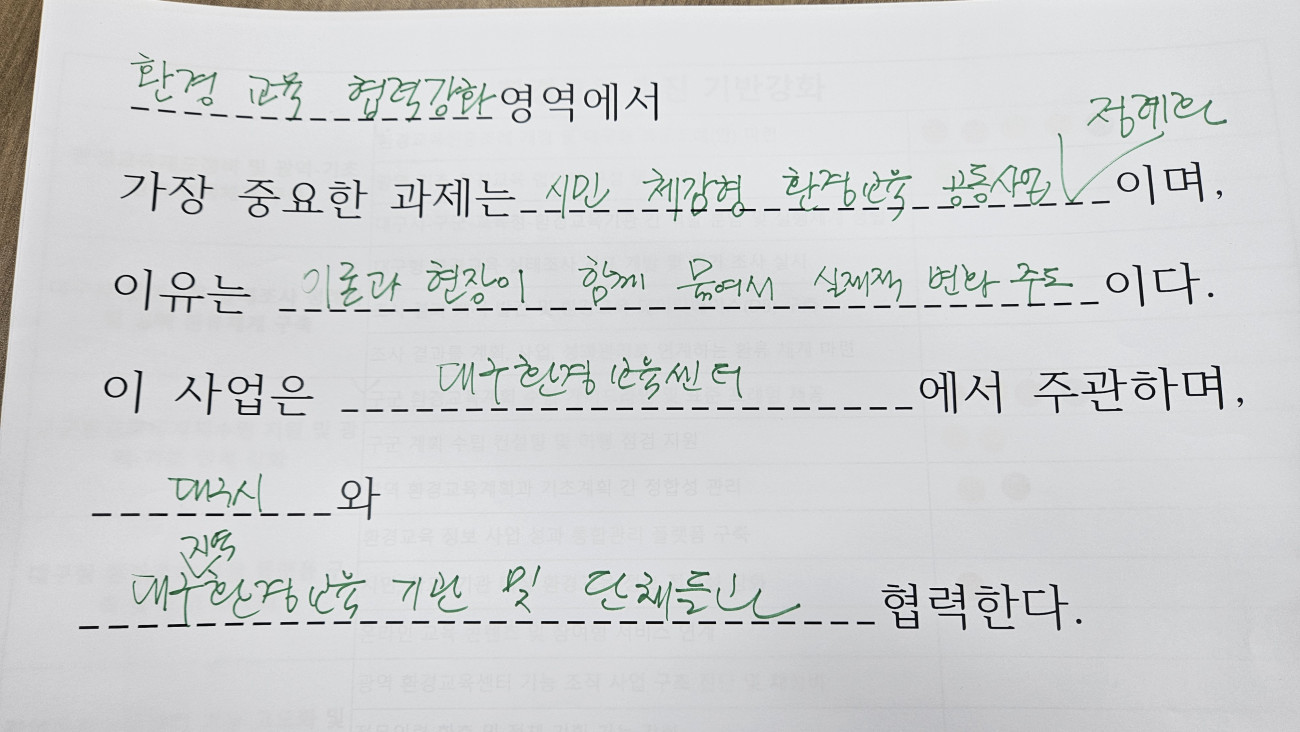 환경 교육 협력강화영역에서
정례화
가장 중요한 과제는 시민 체감형 환경교육 공동사업 이며,
이유는 이론과 현장이 함께 묶여서 실재적 변화 주도 이다.
이 사업은 대구환경교육센터 에서 주관하며,
대구시 와
지역
대구환경교육 기관 및 단체들과 협력한다.